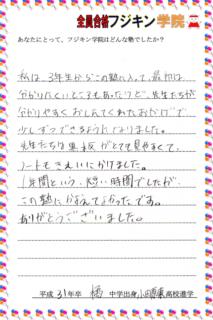 全員合格フジキン学院
あなたにとって、フジキン学院はどんな塾でしたか？
私は、3年生からこの塾に入って、最初は
分かりにくいところもあったけど、先生たちが
分かりやすくおしえてくれたおかげで
少しずつできるようになりました。
先生たちは黒板がとても見やすくて、
ノートもきれいにかけました。
1年間という、短い時間でしたが、
この塾に かよえてよかったです。
ありがとうございました。
平成 31年卒 中学出身 高校進学